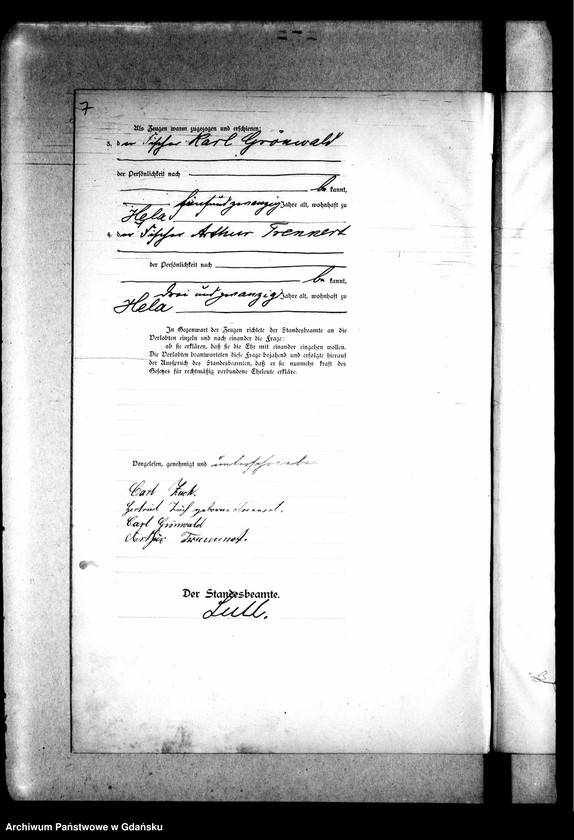 7
Als Zeugen waren zugezogen und erschienen:
3. der Fischer Karl Grönwald
der Persönlichkeit nach
be kannt,
fünfundzwanzig Jahre alt, wohnhaft zu
Hela
4. der Fischer Arthur Trennert
der Persönlichkeit nach
be kannt,
drei und zwanzig Jahre alt, wohnhaft zu
Hela
In Gegenwart der Zeugen richtete der Standesbeamte an die
Verlobten einzeln und nach einander die Frage:
ob sie erklären, daß sie die Ehe mit einander eingehen wollen.
Die Verlobten beantworteten diese Frage bejahend und erfolgte hierauf
der Ausspruch des Standesbeamten, daß er sie nunmehr kraft des
Gesetzes für rechtmäßig verbundene Eheleute erkläre.
Vorgelesen, genehmigt und unterschrieben
Carl
geborne
Carl Grönwald
Arthur
Der Standesbeamte.
Archiwum Państwowe w Gdańsku